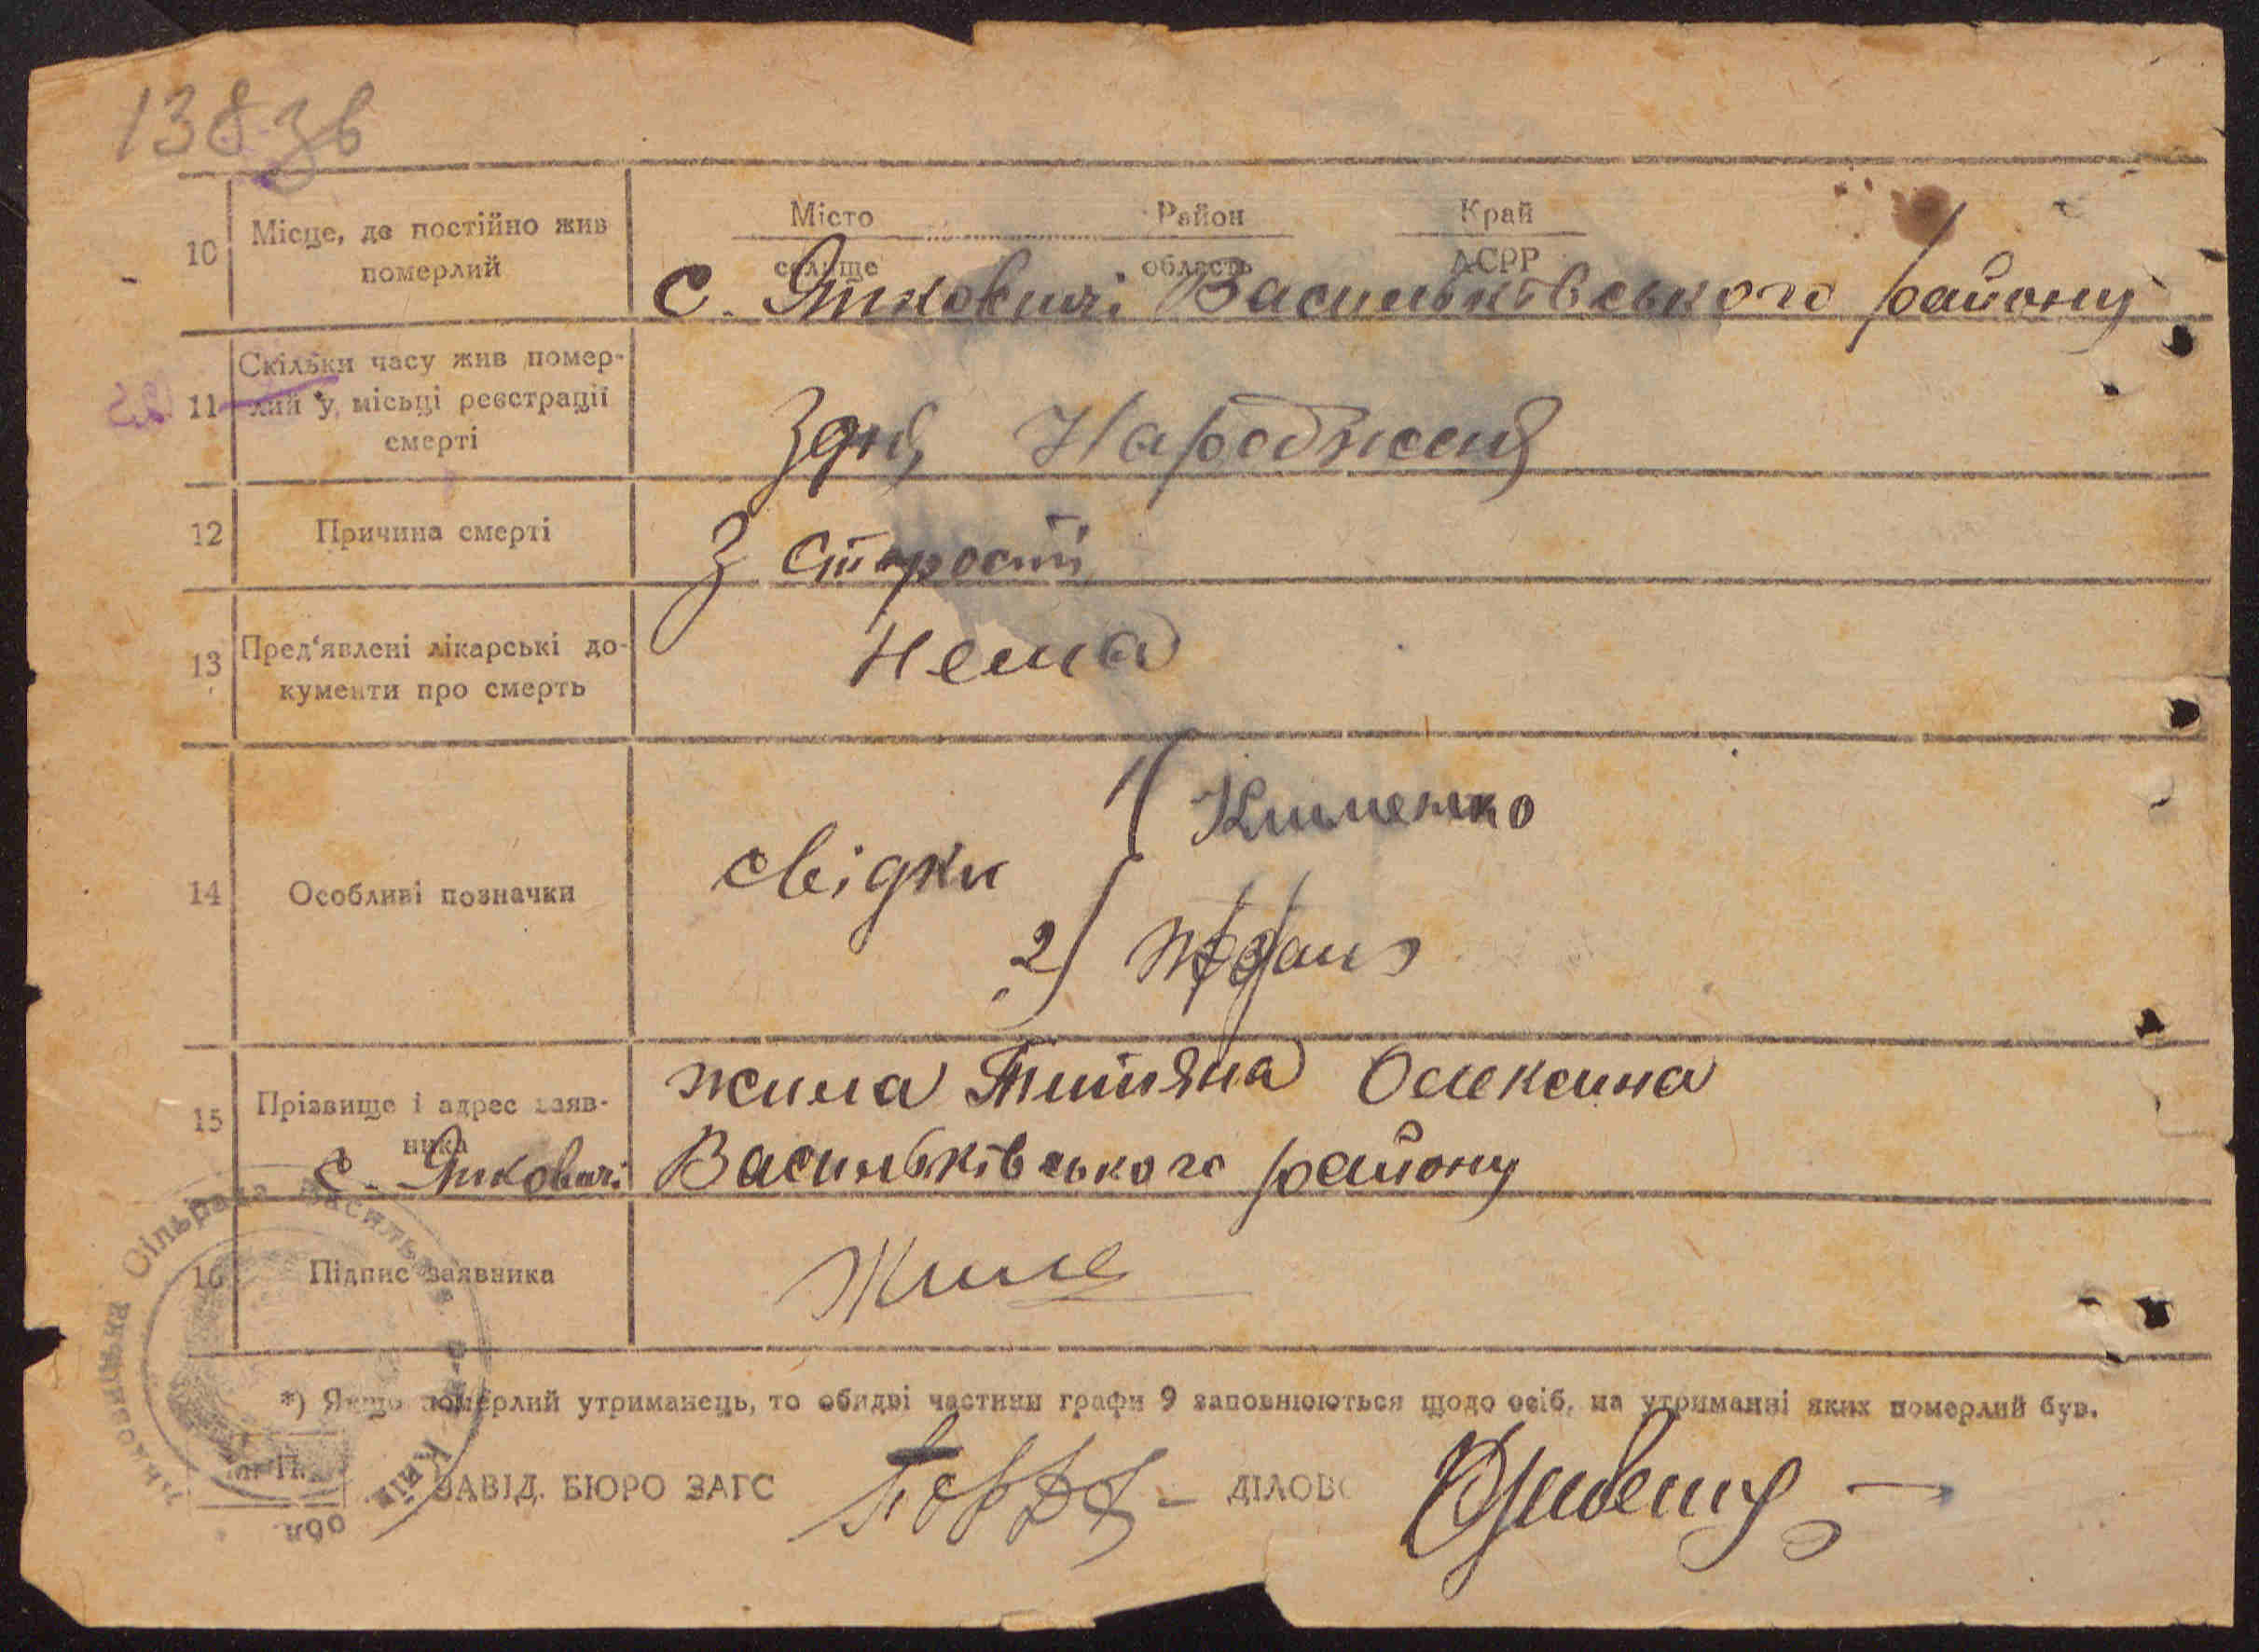 138 зв
10 Місце, де постійно жив померлий
Місто Район Край
селище область АСРР
с. Яцковичі Васильківського району
11 Скільки часу жив помер-
лий у місьці реєстрації
смерті
З дня Народженя
12 Причина смерті
З Старості
13 Пред'явлені лікарські до-
кументи про смерть
Нема
14 Особливі позначки
свідки
1) Клименко
2)
15 Прізвище і адрес заяв-
ника
жила Титяна Олексина
с. Яцковичі Васильківського району
16 Підпис заявника
Жила
*) Якщо померлий утриманець, то обидві частини графи 9 заповнюються щодо осіб, на утриманні яких померлий був.
М. П.
ЗАВІД. БЮРО ЗАГС
ДІЛОВО
Сільрада Васильк. р-ну Київ. обл